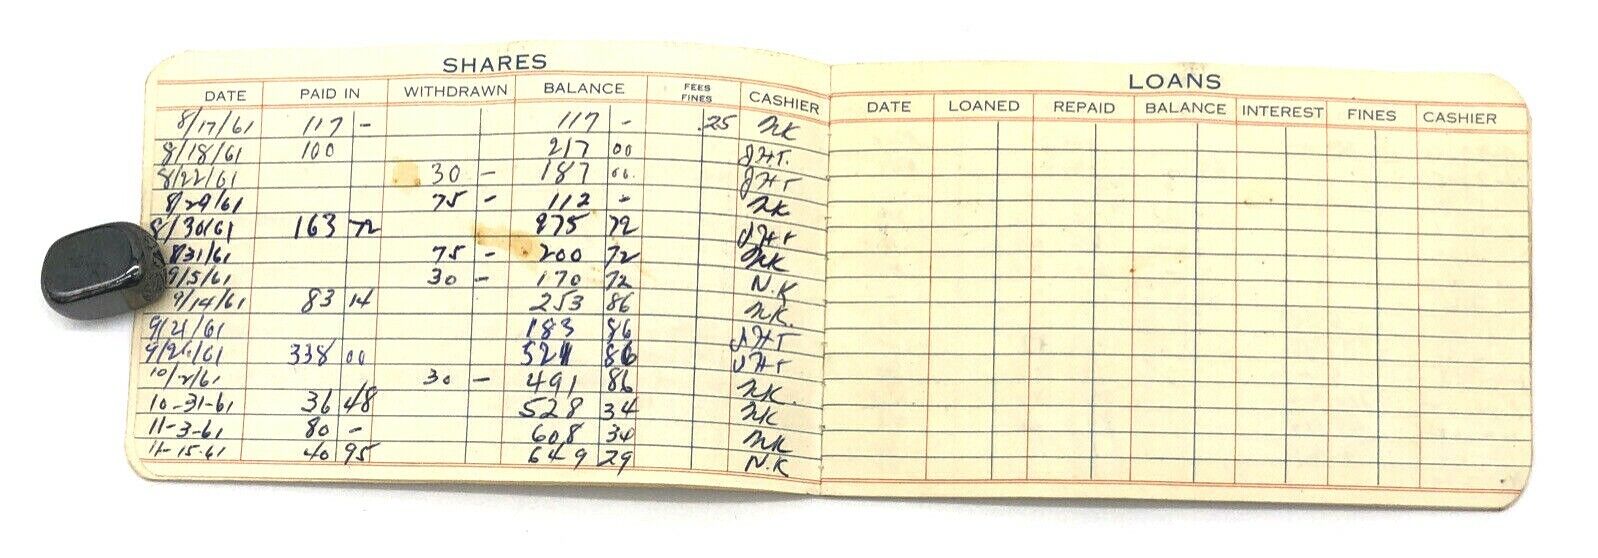 SHARES
DATE PAID IN WITHDRAWN BALANCE FEES FINES CASHIER
8/17/61 117 - 117 - .25 NK
8/18/61 100 217 00 JHT.
8/22/61 30 - 187 00. JHT
8/29/61 75 - 112 - NK
8/30/61 163 72 275 72 JHT
8/31/61 75 - 200 72 NK
9/5/61 30 - 170 72 N.K
9/14/61 83 14 253 86 NK.
9/21/61 183 86 JHT
9/26/61 338 00 521 86 JHT
10/2/61 30 - 491 86 NK.
10-31-61 36 48 528 34 NK
11-3-61 80 - 608 34 NK
11-15-61 40 95 649 29 N.K
LOANS
DATE LOANED REPAID BALANCE INTEREST FINES CASHIER